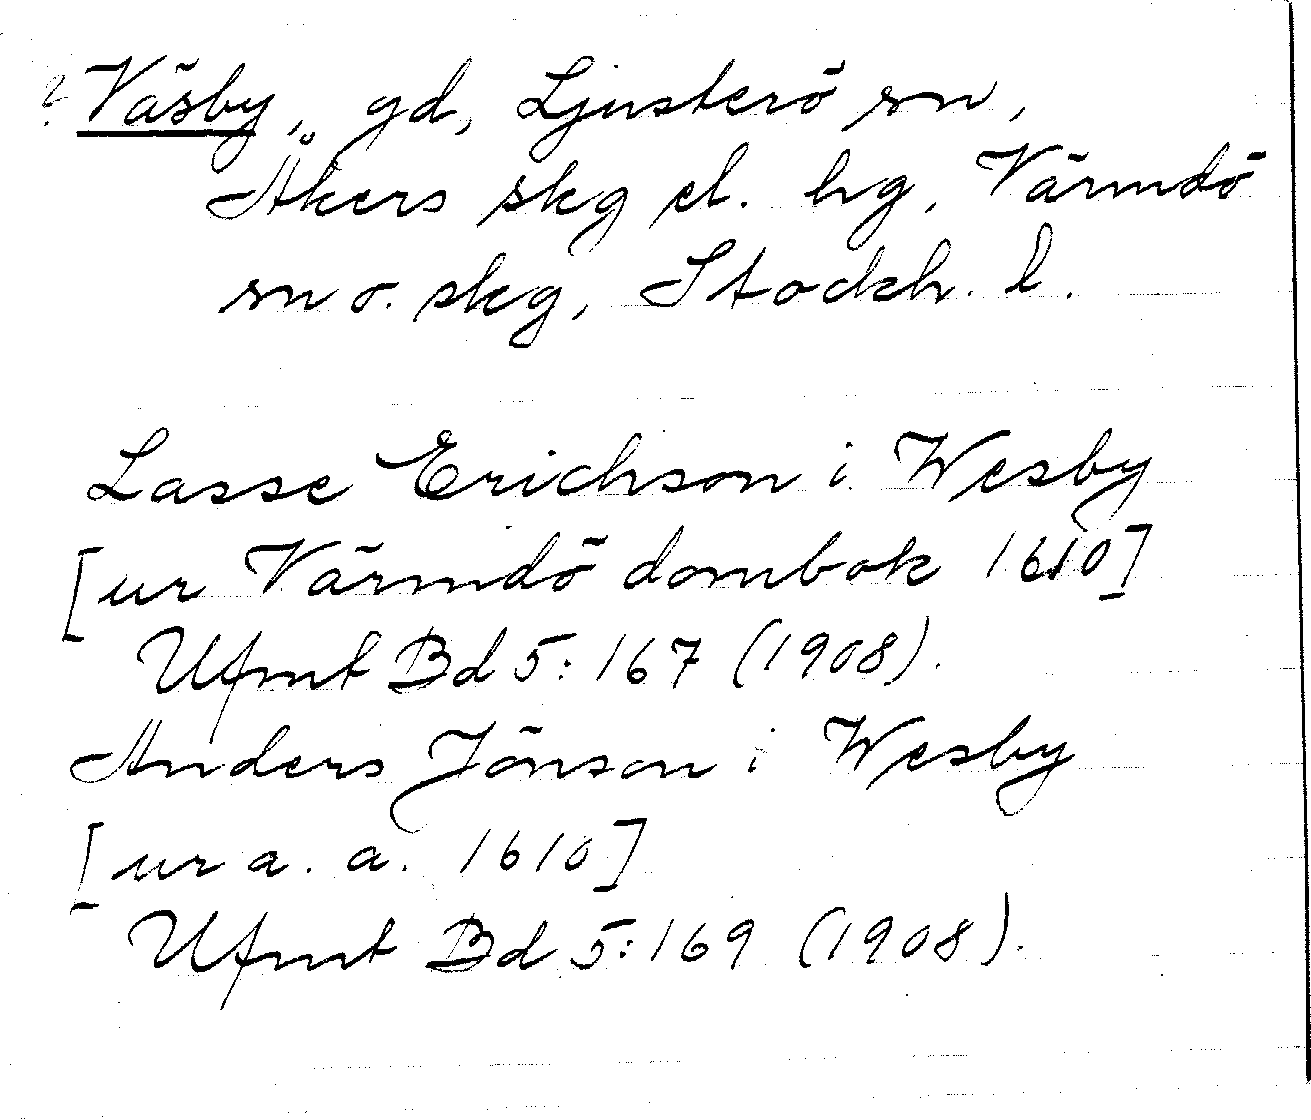 ? Väsby, gd, Ljusterö sn,
Åkers skg el. hg, Värmdö
sn o. skg, Stockh. l.
Lasse Erichson i Wesby
[ur Värmdö dombok 1610]
Ufmt Bd 5:167 (1908).
Anders Jönson i Wesby
[ur a. a. 1610]
Ufmt Bd 5:169 (1908).